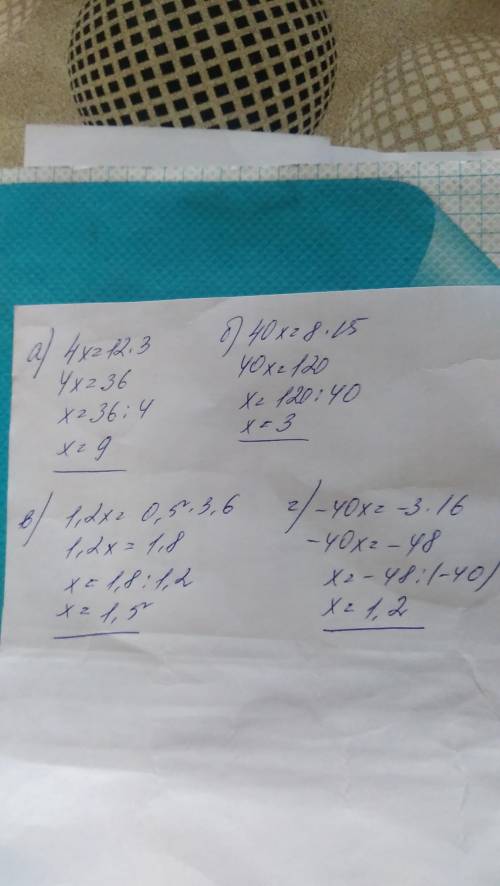 а) 4x=12·3
4x=36
x=36:4
x=9
б) 40x=8·15
40x=120
x=120:40
x=3
в) 1,2x=0,5·3,6
1,2x=1,8
x=1,8:1,2
x=1,5
г) -40x=-3·16
-40x=-48
x=-48:(-40)
x=1,2